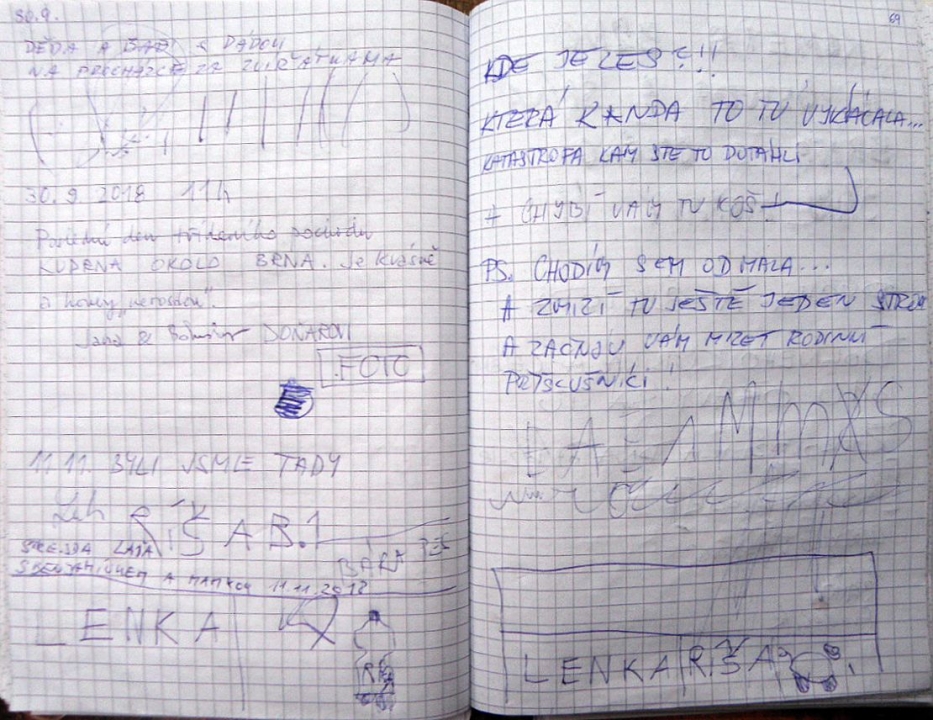 30.9.
DĚDA A BÁBI S DÁDOU
NA PROCHÁZCE ZA ZVÍŘÁTKAMA
30.9.2018 11h
Poslední den třídenního pochodu
KUDRNA OKOLO BRNA. Je krásně
a
Jana & DOŇAROVI
FOTO
11.11. BYLI JSME TADY
RÍŠA B.!
BÁRA PES
A MAMKOU 11.11.2018
LENKA
69
KDE JE LES?!!
KTERÁ KANDA TO TU VYKÁCALA...
KATASTROFA KAM STE TO DOTÁHLI
+ CHYBÍ VÁM TU KOŠ!
PS. CHODÍM SEM OD MALA...
A ZMIZÍ TU JEŠTĚ JEDEN STROM
A ZAČNOU VÁM MIZET RODINNÍ
PŘÍSLUŠNÍCI!
LENKA RÍŠA